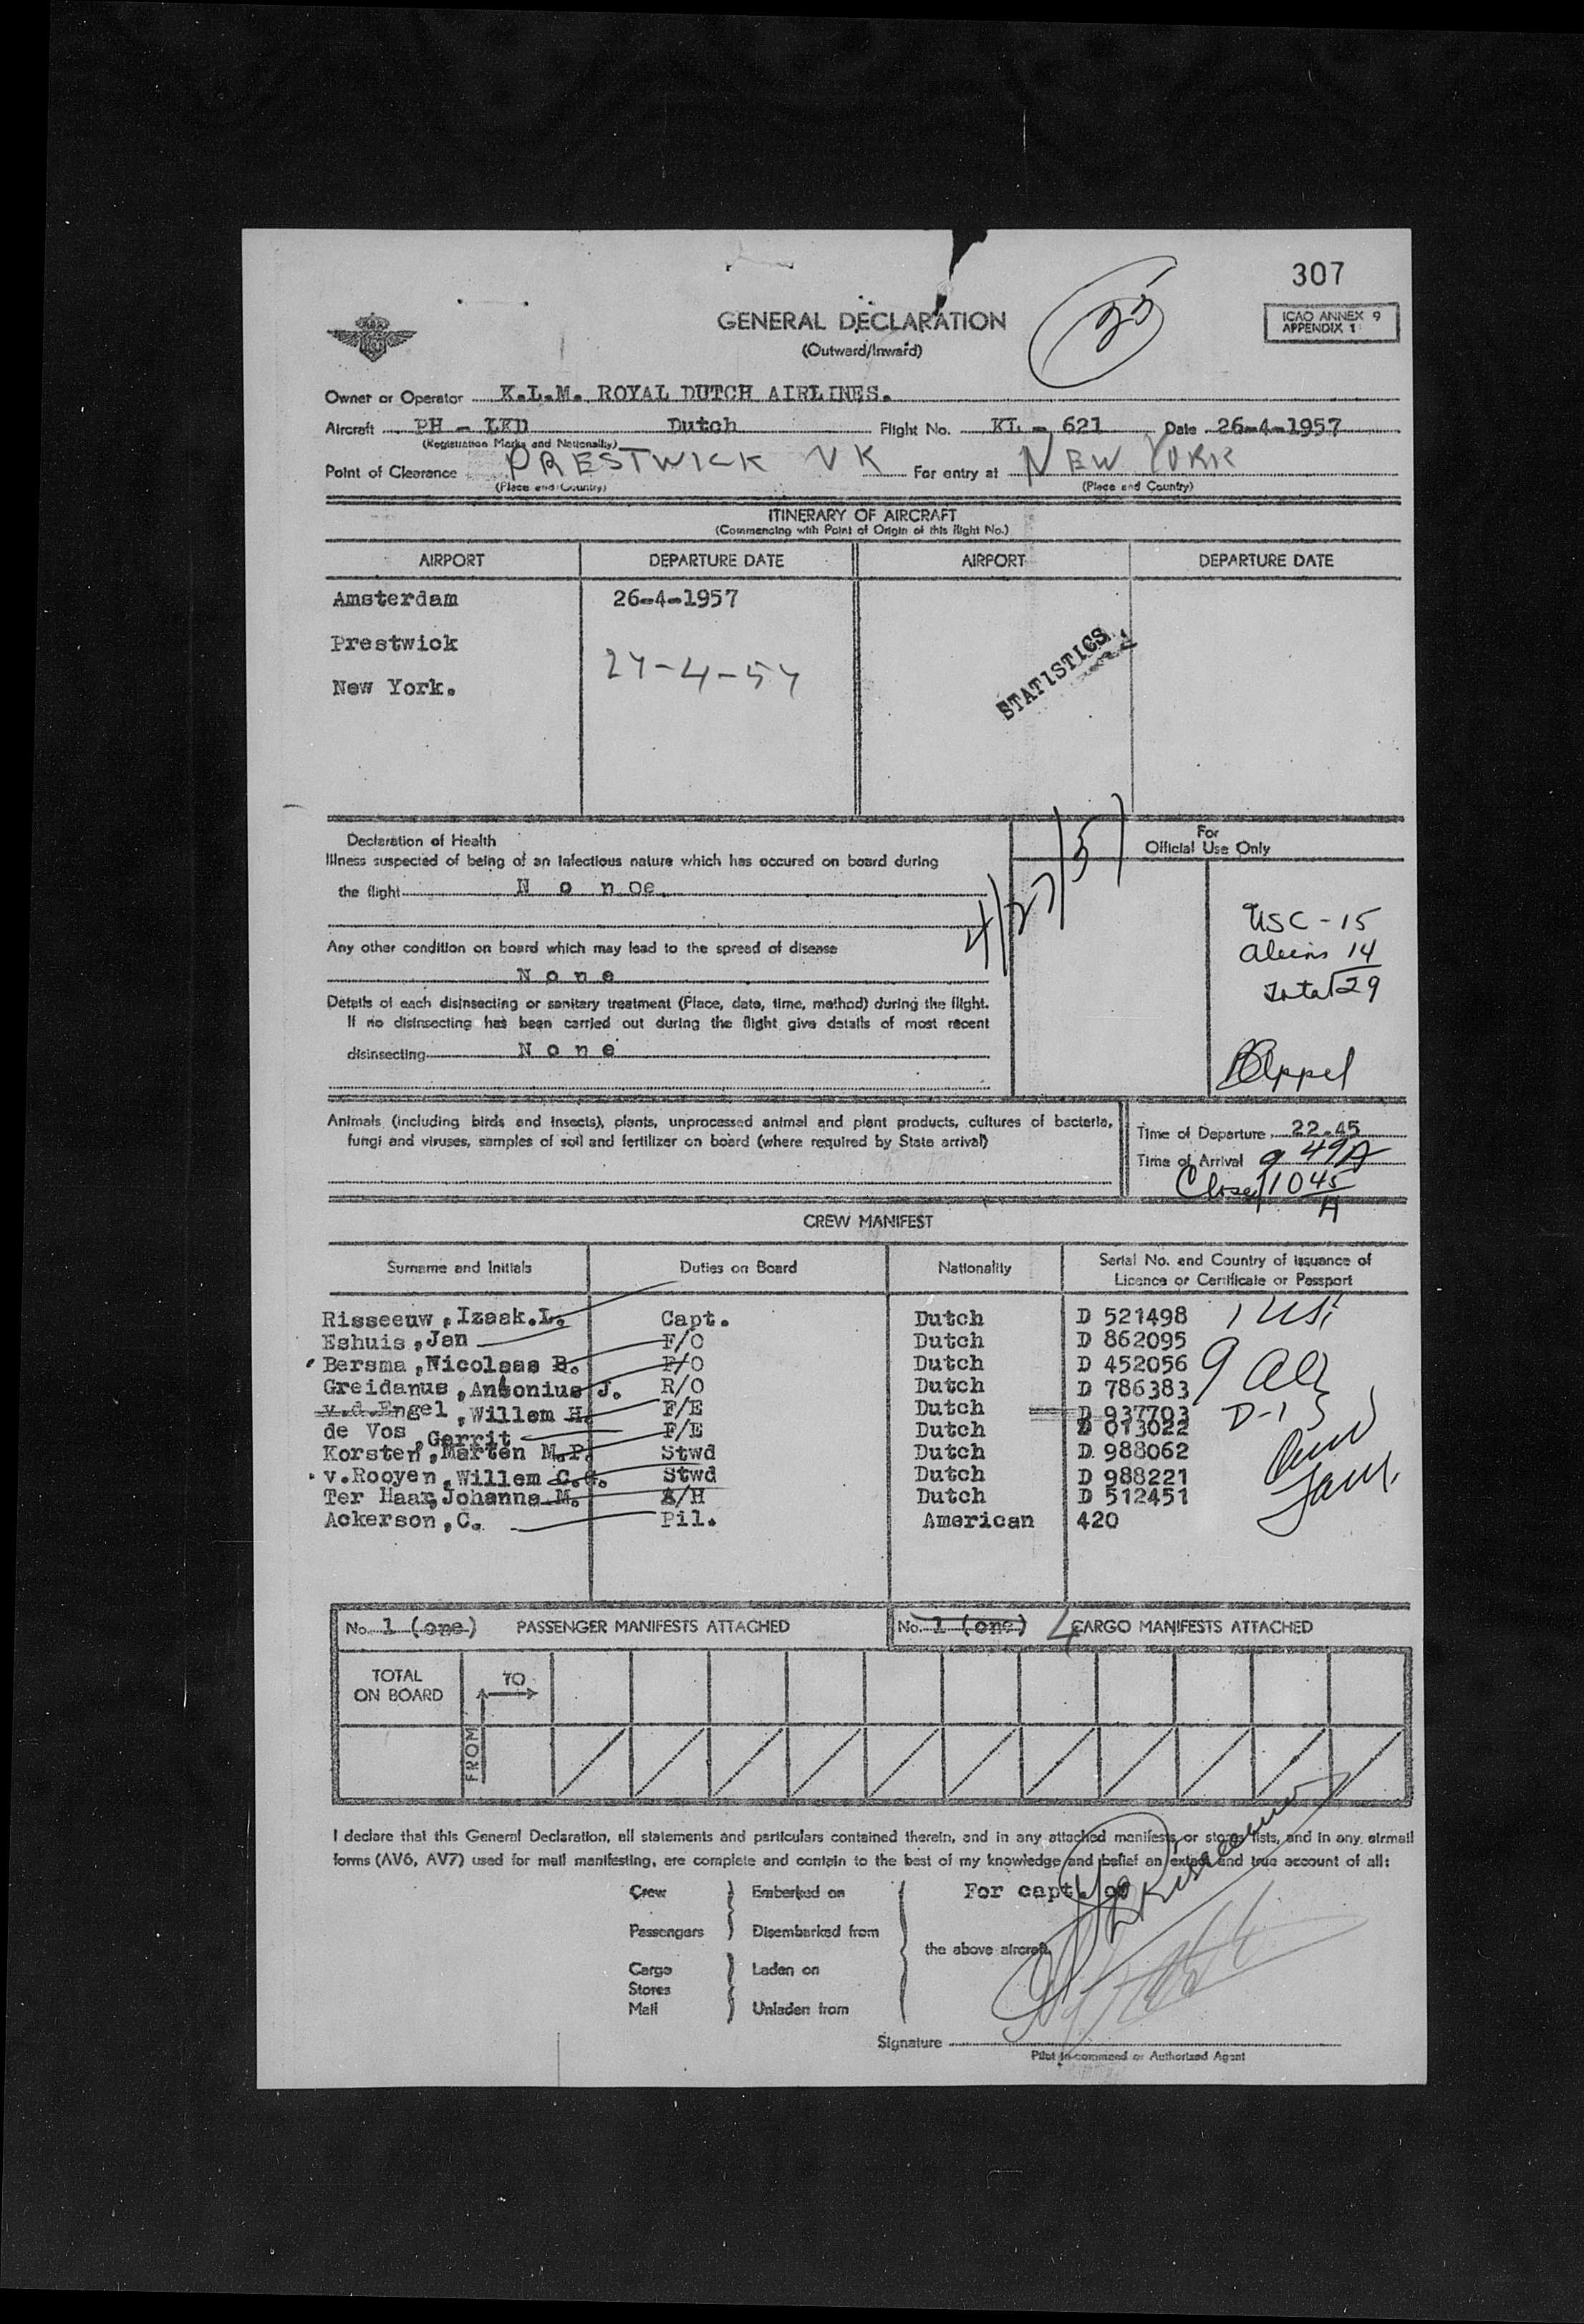 307
ICAO ANNEX 9
APPENDIX 1
GENERAL DECLARATION
(Outward/Inward)
Owner or Operator K.L.M. ROYAL DUTCH AIRLINES.
Aircraft PH - LKD Dutch Flight No. KL - 621 Date 26-4-1957
(Registration Marks and Nationality)
Point of Clearance PRESTWICK UK For entry at NEW YORK
(Place and Country) (Place and Country)
ITINERARY OF AIRCRAFT
(Commencing with Point of Origin of this flight No.)
AIRPORT DEPARTURE DATE AIRPORT DEPARTURE DATE
Amsterdam 26-4-1957
Prestwick 27-4-57
New York.
STATISTICS
4/27/57
Declaration of Health
Illness suspected of being of an infectious nature which has occured on board during
the flight N o n oe
Any other condition on board which may lead to the spread of disease
N o n e
Details of each disinsecting or sanitary treatment (Place, date, time, method) during the flight.
If no disinsecting has been carried out during the flight give details of most recent
disinsecting N o n e
For
Official Use Only
USC - 15
Aliens 14
Total 29
Animals (including birds and insects), plants, unprocessed animal and plant products, cultures of bacteria,
fungi and viruses, samples of soil and fertilizer on board (where required by State arrival)
Time of Departure 22.45
Time of Arrival 9 49A
Closed 1045
A
CREW MANIFEST
Surname and Initials Duties on Board Nationality Serial No. and Country of issuance of
Licence or Certificate or Passport
Risseeuw, Izaak.L. Capt. Dutch D 521498
Eshuis, Jan F/O Dutch D 862095
Bersma, Nicolaas B. F/O Dutch D 452056
Greidanus, Antonius J. R/O Dutch D 786383
v.d.Engel, Willem H. F/E Dutch D 937703
de Vos, Gerrit F/E Dutch D 013022
Korsten, Marten M.P. Stwd Dutch D 988062
v.Rooyen, Willem C.G. Stwd Dutch D 988221
Ter Haar, Johanna M. A/H Dutch D 512451
Ackerson, C. Pil. American 420
D-1
No. 1 (one) PASSENGER MANIFESTS ATTACHED No. 1 (one) 4 CARGO MANIFESTS ATTACHED
TOTAL
ON BOARD
TO
FROM
I declare that this General Declaration, all statements and particulars contained therein, and in any attached manifests or stores lists, and in any airmail
forms (AV6, AV7) used for mail manifesting, are complete and contain to the best of my knowledge and belief an extact and true account of all:
Crew Embarked on For capt. of
Passengers Disembarked from
the above aircraft
Cargo Laden on
Stores
Mail Unladen from
Signature
Pilot in-command or Authorized Agent